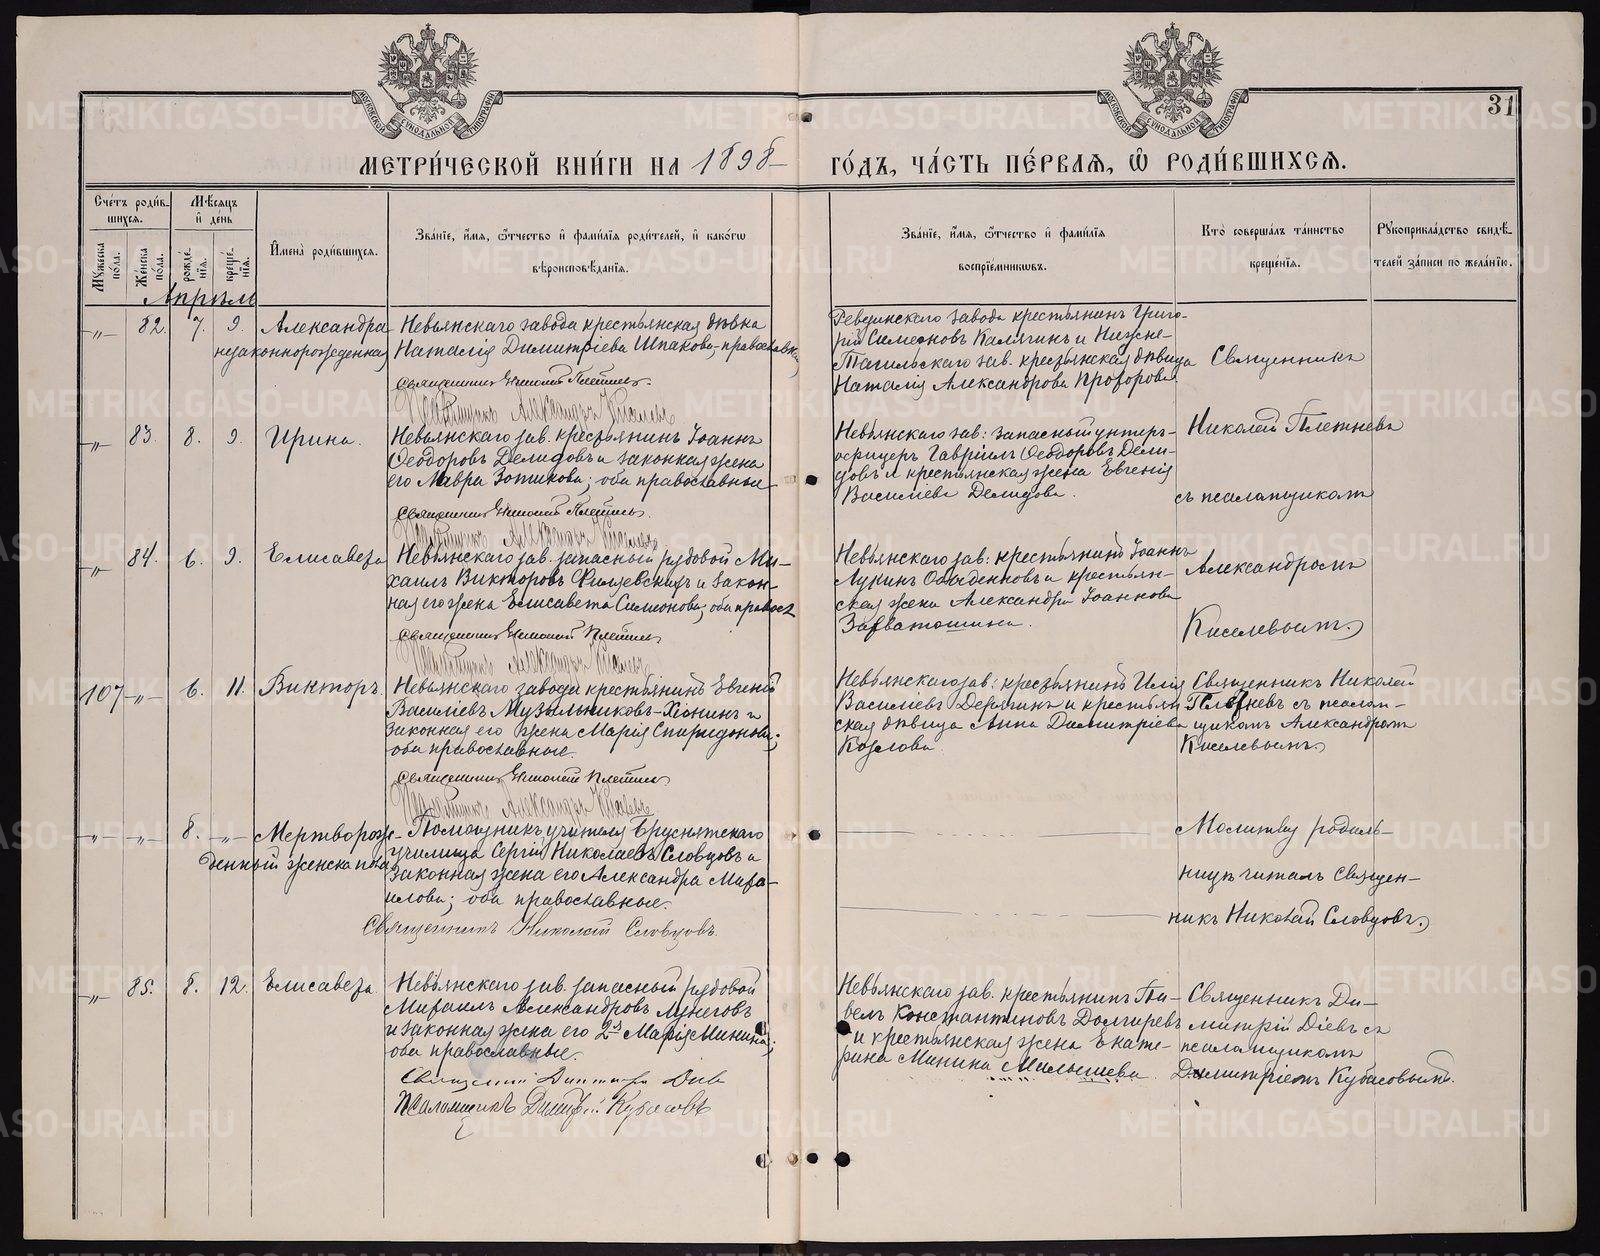 31
МОСКОВСКОЙ СѴНОДАЛЬНОЙ ТИПОГРАФІИ
МОСКОВСКОЙ СѴНОДАЛЬНОЙ ТИПОГРАФІИ
МЕТРИ́ЧЕСКОЙ КНИ́ГИ НА 1898 ГО́ДЪ, ЧА́СТЬ ПЕ́РВАЯ, Ѿ РОДИ́ВШИХСЯ.
Сче́тъ роди́в-
шихся.
Мѣ́сяцъ
и де́нь
Мꙋ́жеска по́ла.
Же́нска по́ла.
рожде́-
нїя.
креще́-
нїя.
Имена̀ роди́вшихся.
Зва́нїе, и́мя, ѻ́тчество и фами́лїя роди́телей, и како́гѡ
вѣроисповѣ́данїя.
Зва́нїе, и́мя, ѻ́тчество и фами́лїя
воспрїе́мникѡвъ.
Кто̀ соверша́лъ та́инство
креще́нїя.
Рꙋкоприкла́дство свидѣ́-
телей за́писи по жела́нїю.
Апрѣль
-„- 82. 7. 9. Александра
незаконнорожденная
Невьянскаго завода крестьянская дѣвка
Наталія Димитріева Шпакова, православн.
Священникъ Николай Плетневъ.
Псаломщикъ Александръ Киселевъ
Ревдинскаго завода крестьянинъ Григо-
рій Симеоновъ Калягинъ и Нижне-
Тагильскаго зав. крестьянская дѣвица
Наталія Александрова Прозорова
Священникъ
-„- 83. 8. 9. Ирина.
Невьянскаго зав. крестьянинъ Іоаннъ
Ѳеодоровъ Делидовъ и законная жена
его Мавра Зотикова; оба православные
Священникъ Николай Плетневъ.
Псаломщикъ Александръ Киселевъ
Невьянскаго зав: запасный унтеръ-
офицеръ Гавріилъ Ѳеодоровъ Дели-
довъ и крестьянская жена Евгенія
Василіева Делидова.
Николай Плетневъ
съ псаломщикомъ
-„- 84. 6. 9. Елисавета
Невьянскаго зав. запасный рядовой Ми-
хаилъ Викторовъ и закон-
ная его жена Елисавета Симеонова; оба правосл
Священникъ Николай Плетневъ
Псаломщикъ Александръ Киселевъ
Невьянскаго зав: крестьянинъ Іоаннъ
Лукинъ Обыденновъ и крестьян-
ская жена Александра Іоаннова
Александромъ
Киселевымъ.)
107 -„- 6. 11. Викторъ.
Невьянскаго завода крестьянинъ Евгеній
Василіевъ Музыльниковъ-Хіонинъ и
законная его жена Марія Спиридонова;
оба православные.
Священникъ Николай Плетневъ
Псаломщикъ Александръ Киселевъ
Невьянскаго зав: крестьянинъ Илія
Василіевъ Дерягинъ и крестьян
ская дѣвица Анна Димитріева
Козлова
Священникъ Николай
Плетневъ съ псалом-
щикомъ Александромъ
Киселевымъ.)
-„- -„- 8. -„- Мертворож-
денный женска пола
Помощникъ учителя Бруснятскаго
училища Сергій Николаевъ Словцовъ и
законная жена его Александра Миха-
илова; оба православные.
Священникъ Николай Словцовъ.
Молитву родиль-
ницѣ читалъ Священ-
никъ Николай Словцовъ.)
-„- 85. 8. 12. Елисавета.
Невьянскаго зав. запасный рядовой
Михаилъ Александровъ Лунеговъ
и законная жена его 2я Марія Минина;
оба православные.
Священникъ Димитрій Діевъ
Псаломщикъ Димитрій Кубасовъ
Невьянскаго зав. крестьянинъ Па-
велъ Константиновъ Долгиревъ
и крестьянская жена Екате-
рина Минина Малышева.
Священникъ Ди-
митрій Діевъ съ
псаломщикомъ
Димитріемъ Кубасовымъ.
METRIKI.GASO-URAL.RU